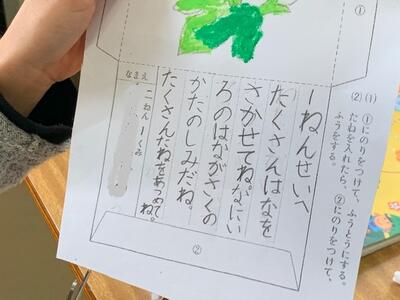 ①
(1) ①にのりをつけて、ふうとうにする。
(2) たねを入れたら、②にのりをつけて、
ふうをする。
一ねんせいへ
たくさんはなを
さかせてね。なにい
ろのはながさくの
かたのしみだね。
たくさんたねをあつめてね。
なまえ
二ねん一くみ
②